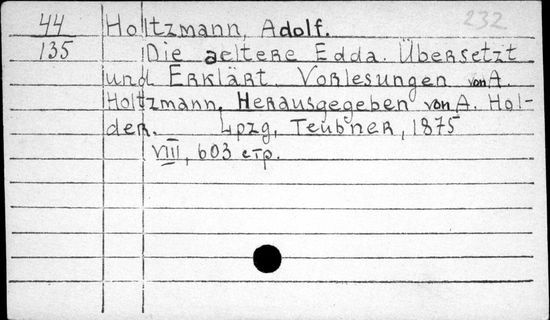 44 Holtzmann, Adolf. 232
135 Die aeltere Edda. Übersetzt
und Erklärt. Vorlesungen von A.
Holtzmann, Herausgegeben von A. Hol-
der. Lpzg, Teubner, 1875
VIII, 603 стр.